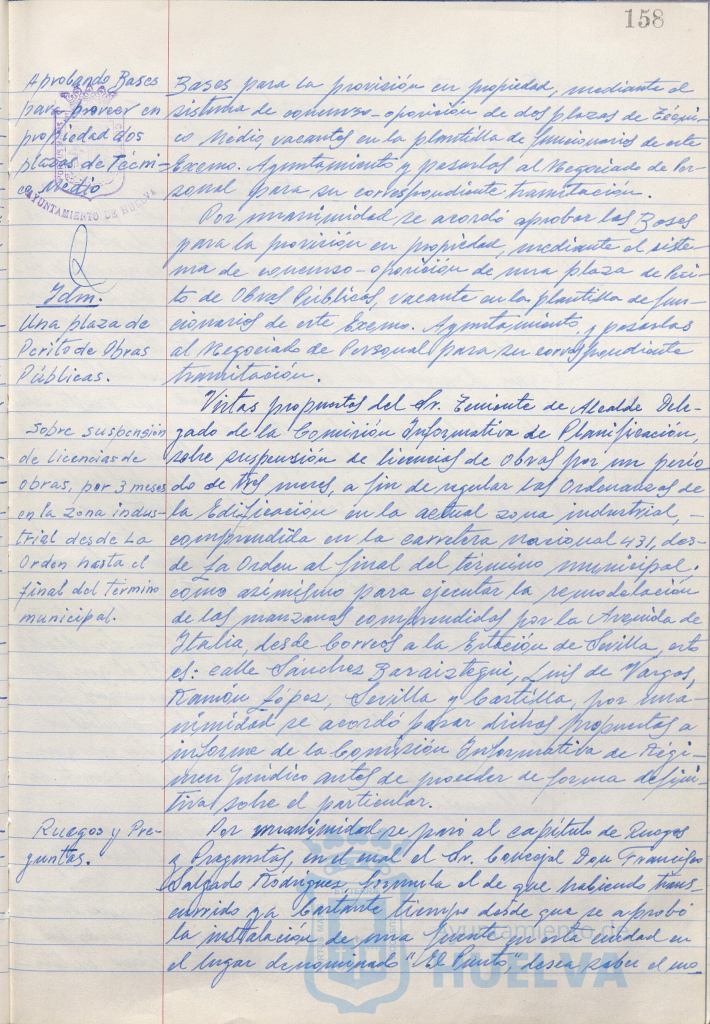 158
Aprobando Bases
para proveer en
propiedad dos
plazas de Técni-
co Medio
AYUNTAMIENTO DE HUELVA
Idm.
Una plaza de
Perito de Obras
Públicas.
Sobre suspensión
de licencias de
obras, por 3 meses
en la zona indus-
trial desde La
Orden hasta el
final del término
municipal.
Ruegos y Pre-
guntas.
Bases para la provisión en propiedad, mediante el
sistema de concurso-oposición de dos plazas de Técni-
co Medio, vacantes en la plantilla de funcionarios de este
Excmo. Ayuntamiento y pasarlas al Negociado de Per-
sonal para su correspondiente tramitación.
Por unanimidad se acordó aprobar las Bases
para la provisión en propiedad, mediante el siste-
ma de concurso-oposición de una plaza de Peri-
to de Obras Públicas, vacante en la plantilla de fun-
cionarios de este Excmo. Ayuntamiento, y pasarlas
al Negociado de Personal para su correspondiente
tramitación.
Vistas propuestas del Sr. Teniente de Alcalde Dele-
gado de la Comisión Informativa de Planificación,
sobre suspensión de licencias de Obras por un perio-
do de tres meses, a fin de regular las Ordenanzas de
la Edificación en la actual zona industrial,-
comprendida en la carretera nacional 431, des-
de La Orden al final del término municipal.
como asimismo para ejecutar la remodelación
de las manzanas comprendidas por la Avenida de
Italia, desde Correos a la Estación de Sevilla, esto
es: calle Sánchez Barcaiztegui, Luis de Vargas,
Ramón López, Sevilla y Castilla, por una-
nimidad se acordó pasar dichas propuestas a
informe de la Comisión Informativa de Régi-
men Jurídico antes de proceder de forma defini-
tiva sobre el particular.
Por unanimidad se pasó al capítulo de Ruegos
y Preguntas, en el cual el Sr. Concejal Don Francisco
Salgado Rodríguez formula el de que habiendo trans-
currido ya bastante tiempo desde que se aprobó
la instalación de una fuente en esta ciudad en
el lugar denominado "El Punto", desea saber el mo-
Ayuntamiento de
HUELVA